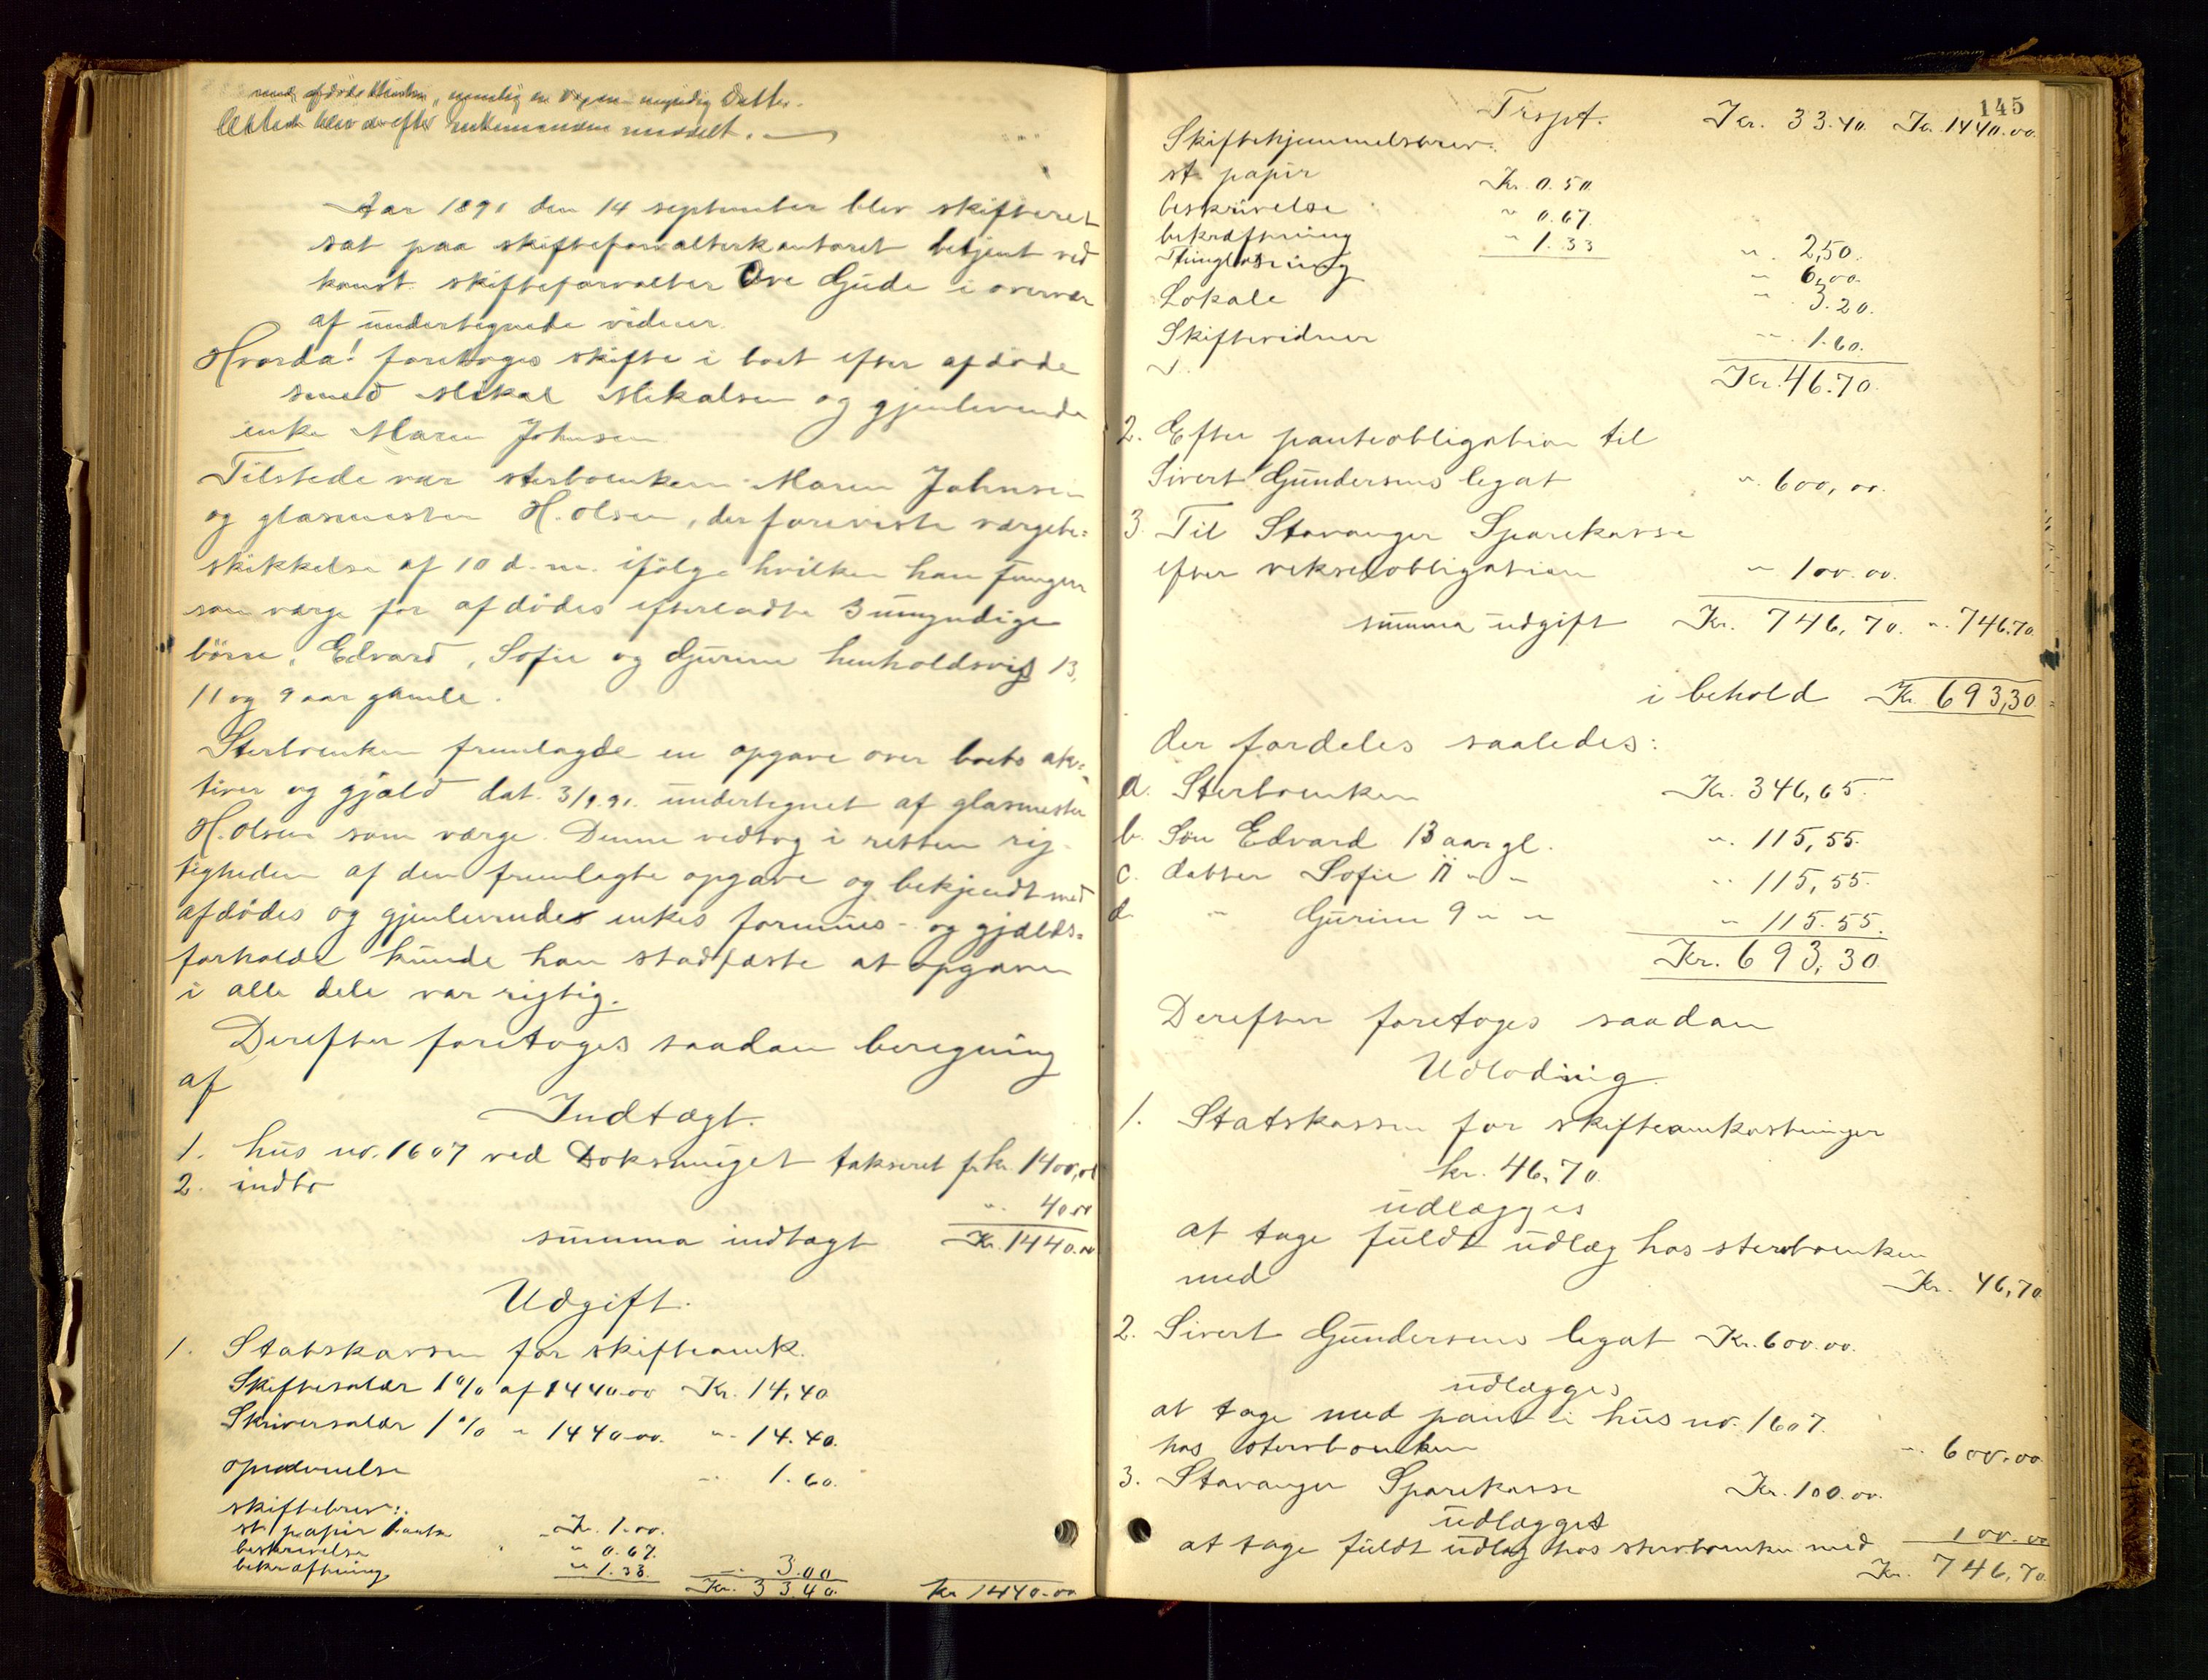 med afdøde, nemlig en umyndig Datter.
Attest blev derefter enkemanden meddelt.
Aar 1891 den 14 september blev skifteret
sat paa skifteforvalterkontoret betjent ved
konst. skifteforvalter Ove Gude i overvær
af undertegnede vidner.
Hvorda! foretoges skifte i boet efter afdøde
smed Mikal Mikalsen og gjenlevende
enke Maren Johnsen
Tilstede var sterboenken Maren Johnsen
og glasmester H. Olsen, der foreviste værgebe=
skikkelse af 10 d.m. ifølge hvilken han fungerer
som værge for afdødes efterladte 3 umyndige
börn, Edvard, Sofie og Gurine henholdsvis 13,
11 og 9 aar gamle.
Sterboenken fremlagde en opgave over boets ak=
tiver og gjæld dat. 3/9 91. undertegnet af glasmester
H. Olsen som værge. Denne vedtog i retten rig
tigheden af den fremlagte opgave og bekjendt med
afdødes og gjenlevendes enkes formues- og gjælds=
forholde kunde han stadfæste at opgaven
i alle dele var rigtig.
Derefter foretoges saadan beregning
af
Indtægt.
1. hus no. 1607 ved Doksmuget takseret for kr. 1400,00
2. indbo " 40.00
summa indtægt Kr. 1440.00
Udgift.
1. Statskassen for skifteomk.
Skiftesalær 1% af 1440.00 Kr. 14,40
Skriversalær 1% " 1440.00. " 14.40.
opnævnelse " 1.60.
skiftebrev:
st. papir 1 Kr. 1.00.
beskrivelse " 0.67.
bekræftning " 1.33. " 3.00
Kr. 33.40. kr 1440.00
145
Trspt. Kr. 33.40. Kr. 1440.00.
Skiftehjemmelsbrev:
st. papir Kr. 0.50
beskrivelse " 0.67.
bekræftning " 1.33 " 2,50.
Thinglæsning " 6,00.
Lokale " 3.20.
Skiftevidner " 1.60.
Kr. 46.70.
2. Efter panteobligation til
Sivert Gundersens legat " 600,00.
3. Til Stavanger Sparekasse
efter vekselobligation " 100.00.
summa udgift Kr. 746,70. " 746.70.
i behold Kr. 693,30
der fordeles saaledes:
a. Sterboenken Kr. 346,65.
b. Søn Edvard 13 aar gl. " 115,55.
c. datter Sofie 11 " " " 115,55.
d. " Gurine 9 " " " 115.55.
Kr. 693,30
Derefter foretoges saadan
Udlodning.
1. Statskassen for skifteomkostninger
kr. 46.70.
udlægges
at tage fuldt udlæg hos sterboenken
med Kr. 46,70.
2. Sivert Gundersens legat Kr. 600.00.
udlægges
at tage med pant i hus no. 1607.
hos sterboenken " 600.00
3. Stavanger Sparekasse Kr. 100.00.
udlægges
at tage fuldt udlæg hos sterboenken med 100.00
Kr. 746,70